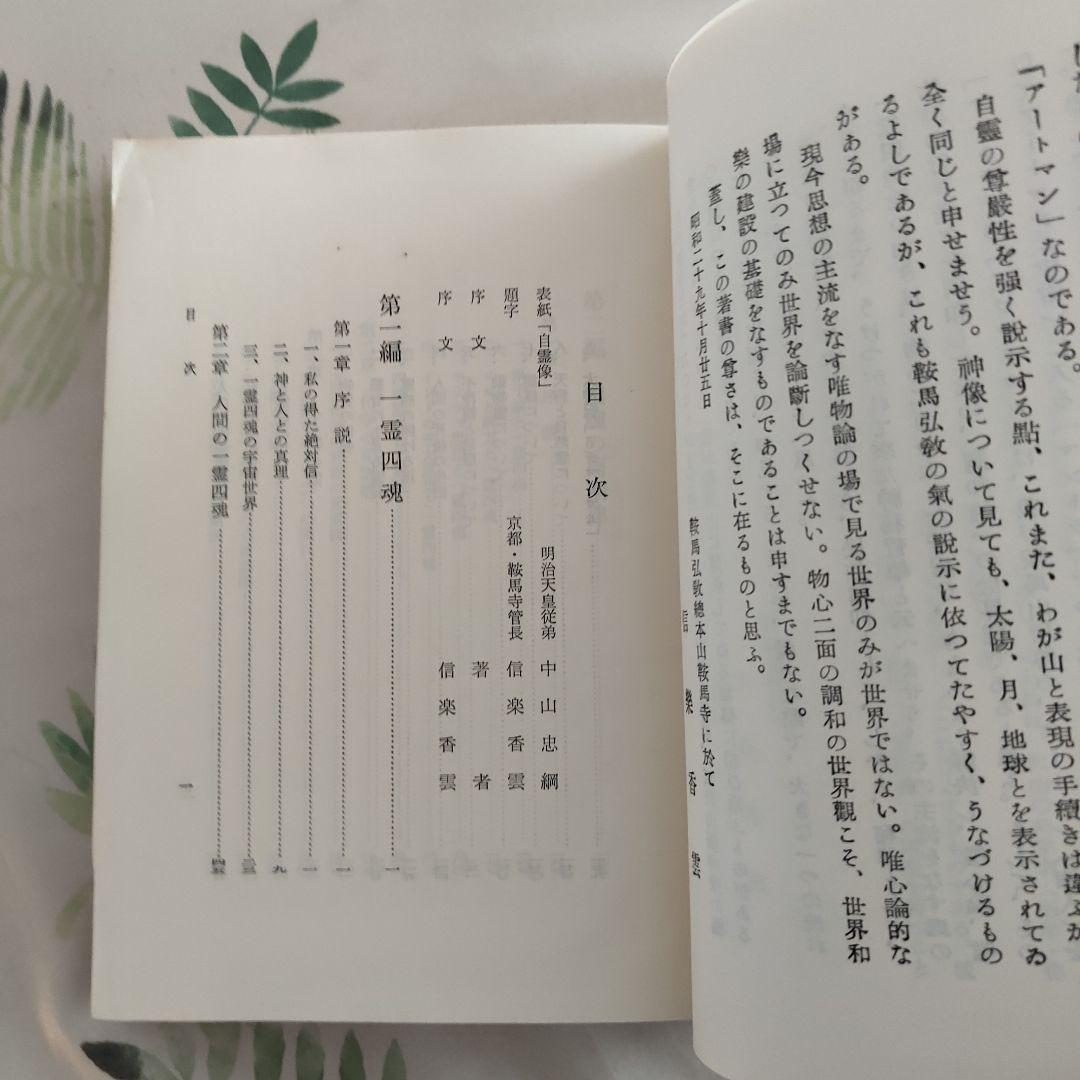 「アートマン」なのである。
自靈の尊嚴性を强く說示する點、これまた、わが山と表現の手續きは違ふが
全く同じと申せませう。神像について見ても、太陽、月、地球とを表示されてゐ
るよしであるが、これも鞍馬弘敎の氣の說示に依つてたやすく、うなづけるもの
がある。
現今思想の主流をなす唯物論の場で見る世界のみが世界ではない。唯心論的な
場に立つてのみ世界を論斷しつくせない。物心二面の調和の世界觀こそ、世界和
樂の建設の基礎をなすものであることは申すまでもない。
蓋し、この著書の尊さは、そこに在るものと思ふ。
昭和二十九年十月廿五日
鞍馬弘敎總本山鞍馬寺に於て
信樂香雲
目次
表紙「自霊像」 明治天皇従弟 中山忠綱
題字 京都・鞍馬寺管長 信楽香雲
序文 著者
序文 信楽香雲
第一編 一霊四魂 一
第一章 序説 一
一、私の得た絶対信 一
二、神と人との真理 九
三、一霊四魂の宇宙世界
第二章 人間の一霊四魂
目次
一